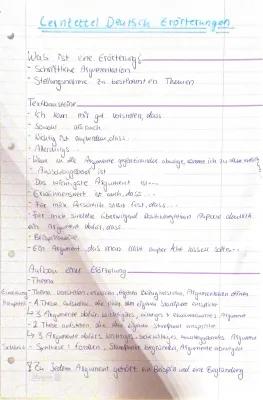 Lernzettel Deutsch Erörterungen
Was ist eine Erörterung?
- Schriftliche Argumentation
- Stellungnahme zu bestimmten Themen
Textbausteine
- Ich kann mir gut vorstellen, dass
- Sowohl als auch
- Wichtig ist außerdem, dass...
- Allerdings...
- Wenn ich die Argumente gegeneinander abwäge, komme ich zu
- Ausschlaggebend ist
- Das wichtigste Argument ist...
- ist auch, dass...
- Für mich steht fest, dass...
- Für mich sprechen überwiegend Aspekte
ein Argument dafür, dass..
- Beispielsweise
- Ein Argument, das man nicht außer Acht lassen sollte...
Aufbau einer Erörterung
- Thema
Einleitung - Thema vorstellen,
Hauptteil - 4 These aufstellen, die eigenen Standpunkt entspricht
→ 3 Argumente dafür: wichtiges, Argument
- 2 These aufstellen, die dem eigenen Standpunkt entspricht
→ 3 Argumente dafür: wichtiges, Argument
Schluss - Synthese: Standpunkt begründen, Argumente abwägen
Zu jedem Argument gehört ein Beispiel und eine Begründung